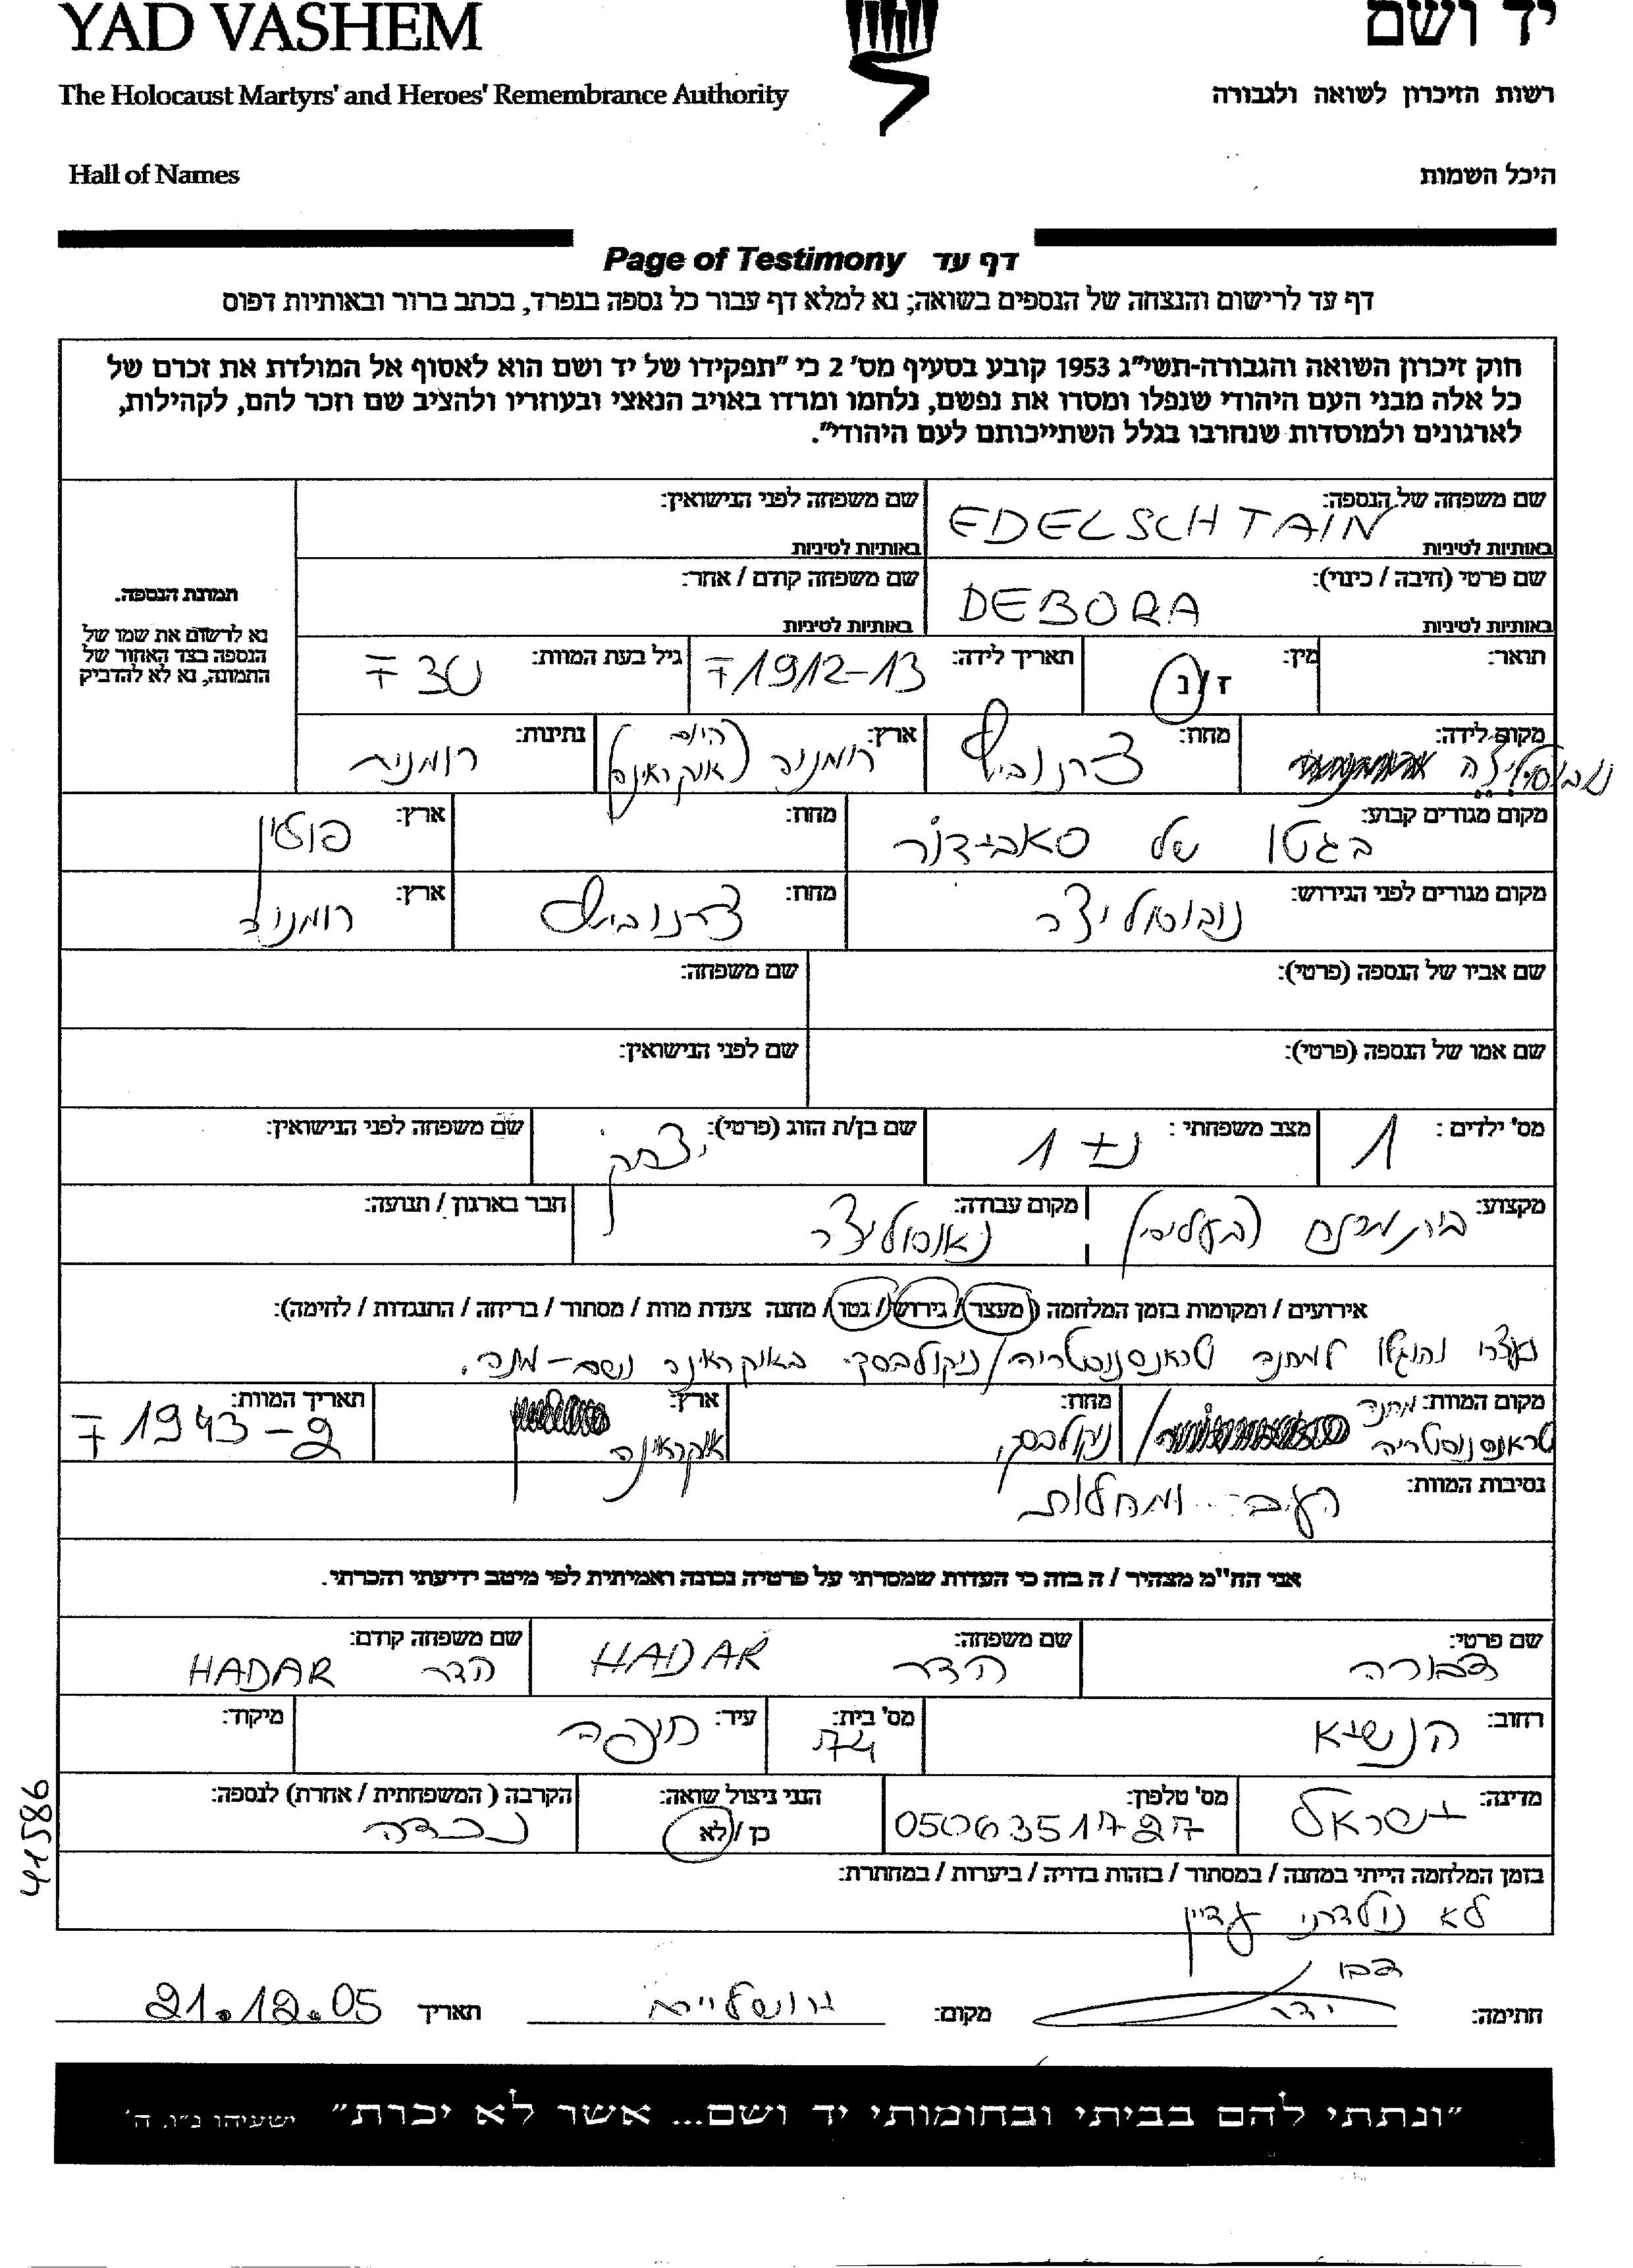 YAD VASHEM
יד ושם
The Holocaust Martyrs' and Heroes' Remembrance Authority
רשות הזיכרון לשואה ולגבורה
Hall of Names
היכל השמות
Page of Testimony דף עד
דף עד לרישום והנצחה של הנספים בשואה; נא למלא דף עבור כל נספה בנפרד, בכתב ברור ובאותיות דפוס
חוק זיכרון השואה והגבורה-תשי"ג 1953 קובע בסעיף מס' 2 כי "תפקידו של יד ושם הוא לאסוף אל המולדת את זכרם של
כל אלה מבני העם היהודי שנפלו ומסרו את נפשם, נלחמו ומרדו באויב הנאצי ובעוזריו ולהציב שם וזכר להם, לקהילות,
לארגונים ולמוסדות שנחרבו בגלל השתייכותם לעם היהודי".
שם משפחה של הנספה: EDELSCHTAIN
באותיות לטיניות
שם משפחה לפני הנישואין:
באותיות לטיניות
תמונת הנספה.
נא לרשום את שמו של
הנספה בצד האחור של
התמונה, נא לא להדביק
שם פרטי (חיבה / כינוי): DEBORA
באותיות לטיניות
שם משפחה קודם / אחר:
באותיות לטיניות
תואר:
מין: ז / נ
תאריך לידה: 1912-13
גיל בעת המוות: 30
מקום לידה:
מחוז: צרנוביץ
ארץ: רומניה (היום אוקראינה)
נתינות: רומנית
מקום מגורים קבוע: בגטו של
מחוז:
ארץ:
מקום מגורים לפני הגירוש: נובוסליצה
מחוז: צרנוביץ
ארץ: רומניה
שם אביו של הנספה (פרטי):
שם משפחה:
שם אמו של הנספה (פרטי):
שם לפני הנישואין:
מס' ילדים: 1
מצב משפחתי: נ+1
שם בן/ת הזוג (פרטי): יצחק
שם משפחה לפני הנישואין:
מקצוע: (בעלים)
מקום עבודה: נאוסליצה
חבר בארגון / תנועה:
אירועים / ומקומות בזמן המלחמה (מעצר / גירוש / גטו / מחנה צעדת מוות / מסתור / בריחה / התנגדות / לחימה):
נעצרו והוגלו למחנה טראנסנוסטריה/ניקולבסקי באוקראינה ושם-מתה.
מקום המוות: מחנה טראנסנוסטריה
מחוז: ניקולבסקי
ארץ: אוקראינה
תאריך המוות: 1943-2
נסיבות המוות: רעב ומחלות
אני הח"מ מצהיר / ה בזה כי העדות שמסרתי על פרטיה נכונה ואמיתית לפי מיטב ידיעתי והכרתי.
שם פרטי: דבורה
שם משפחה: הדר HADAR
שם משפחה קודם: הדר HADAR
רחוב: הנשיא
מס' בית:
עיר: חיפה
מיקוד:
מדינה: ישראל
מס' טלפון: 0506351727
הנני ניצול שואה: כן / לא
הקרבה (המשפחתית / אחרת) לנספה: נכדה
בזמן המלחמה הייתי במחנה / במסתור / בזהות בדויה / ביערות / במחתרת:
לא נולדתי עדיין
41586
חתימה:
מקום: ירושלים
תאריך 21.12.05
"ונתתי להם בביתי ובחומותי יד ושם... אשר לא יכרת" ישעיהו נ"ו, ה'